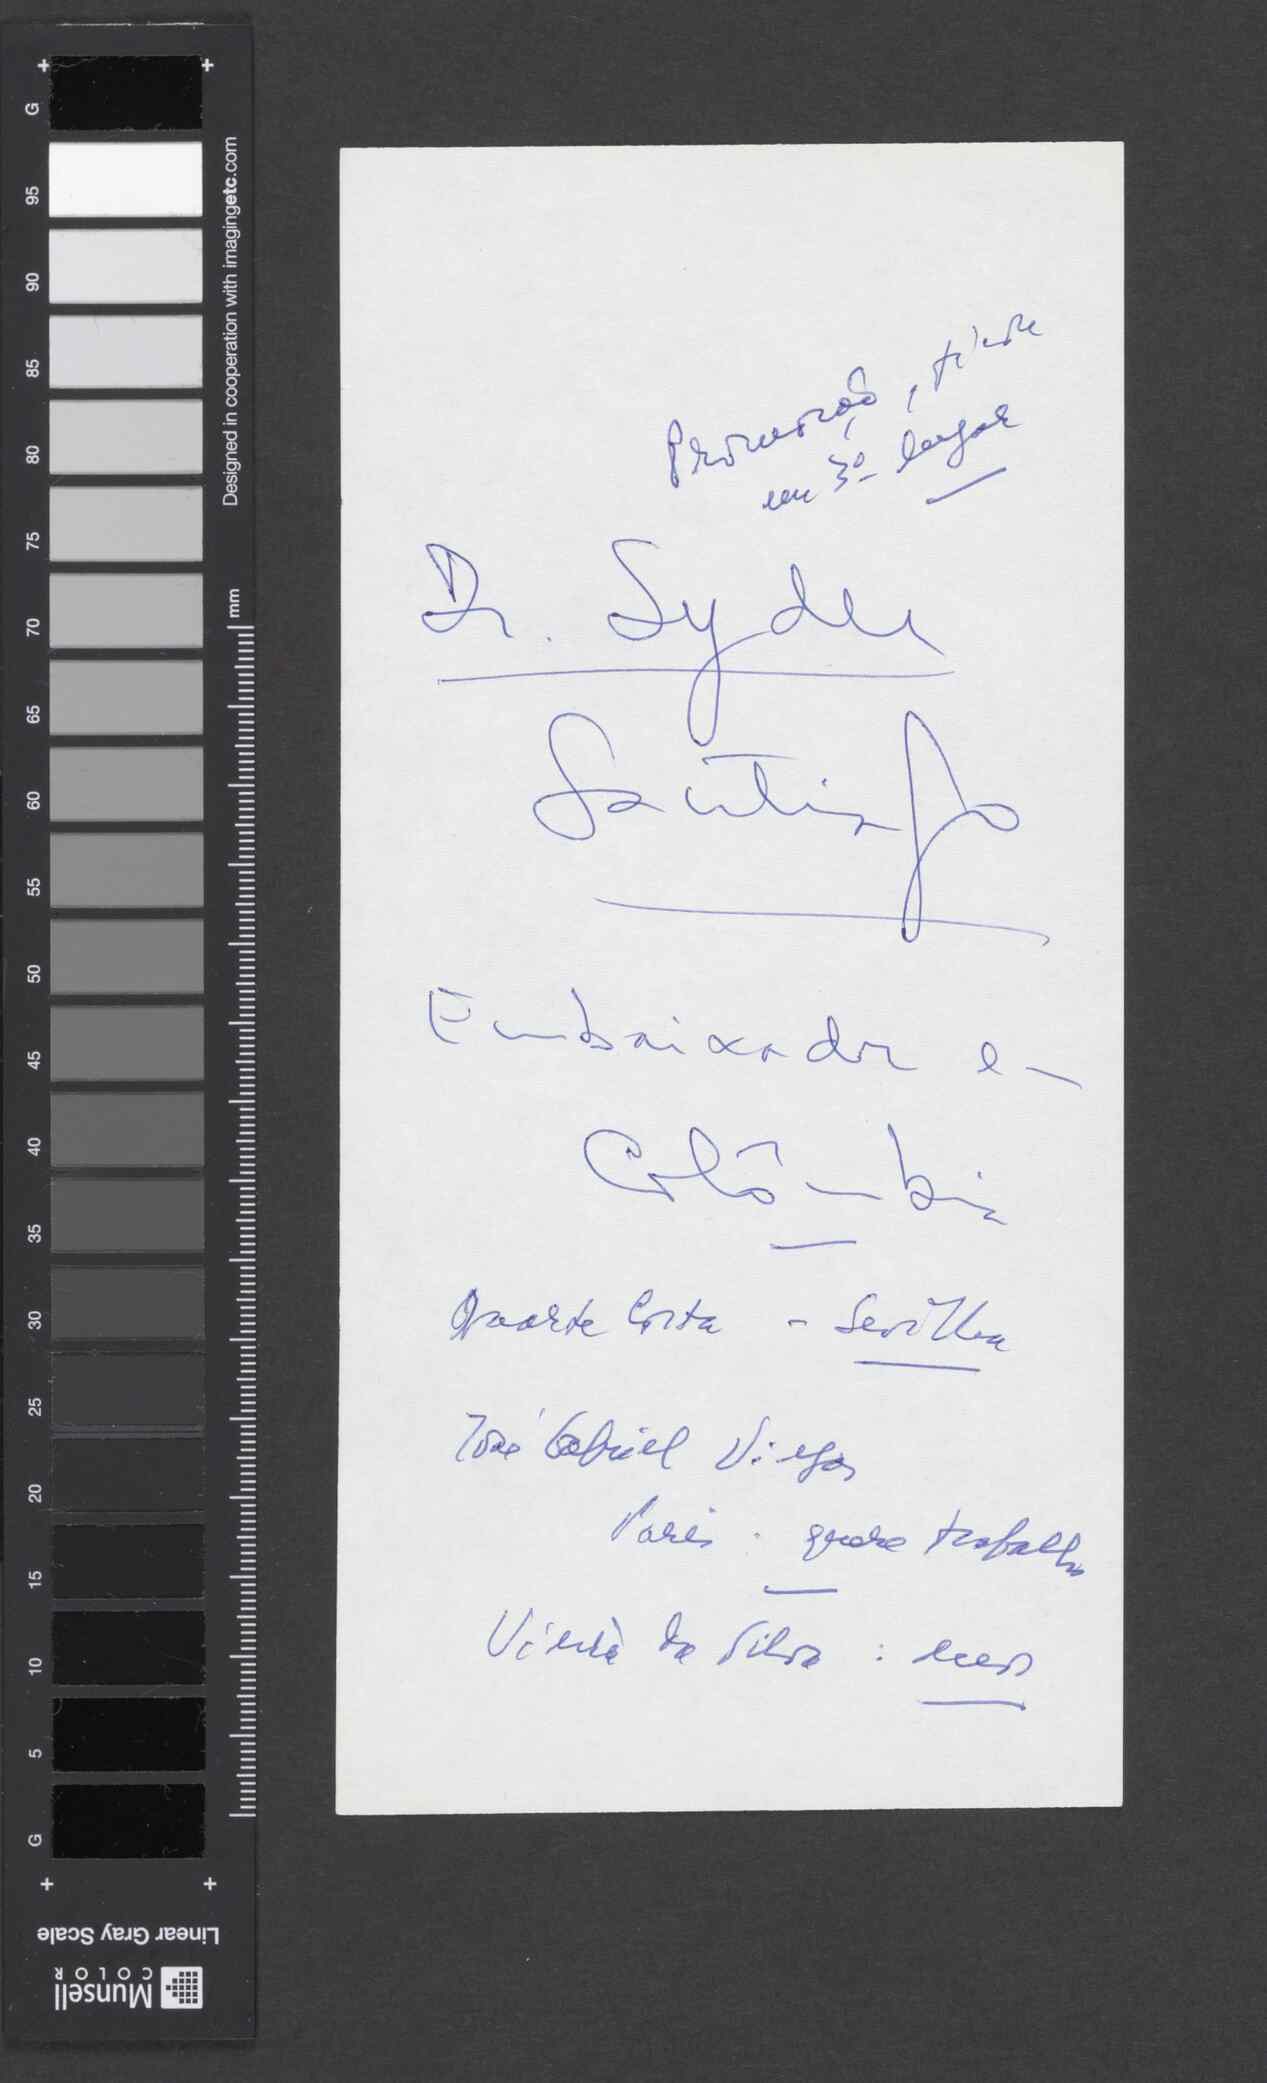 Promoção, ficou
em 3º lugar
Dr. Syder
Santiago
Embaixador em
Colômbia
Duarte Costa - Sevilha
José Gabriel Viegas
Paris. quere trabalho
Vieira da Silva :
G 95 90 85 80 75 70 65 60 55 50 45 40 35 30 25 20 15 10 5 G
Designed in cooperation with imagingetc.com
mm
Linear Gray Scale
Munsell
COLOR